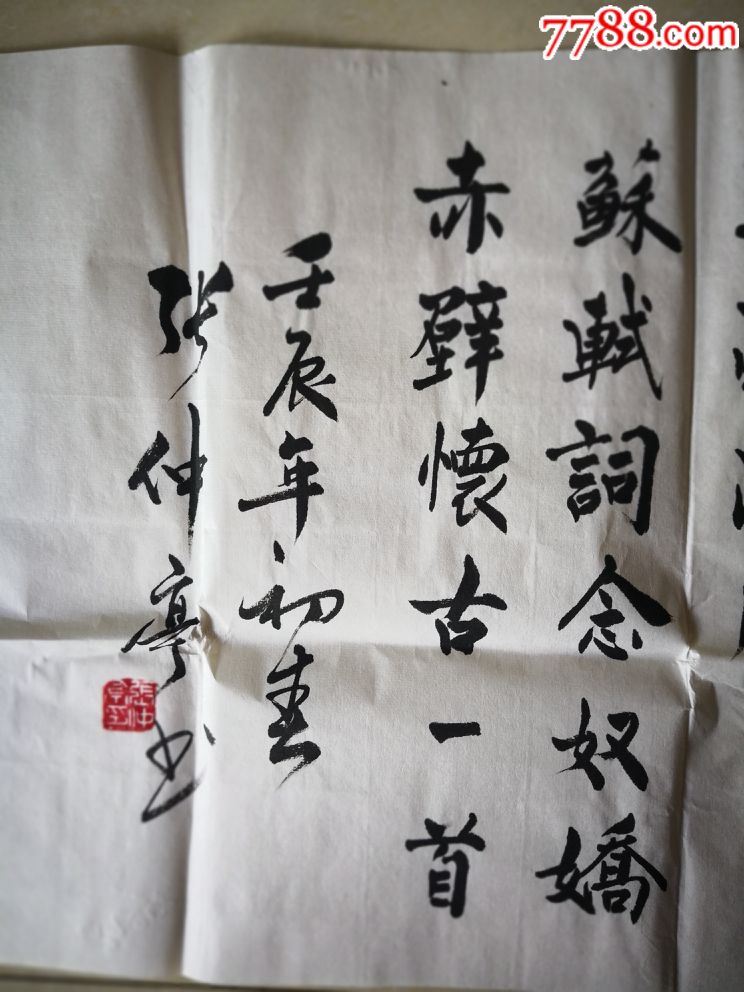 7788.com
蘇軾詞念奴嬌
赤壁懷古一首
壬辰年初春
張仲亭书
張仲亭印